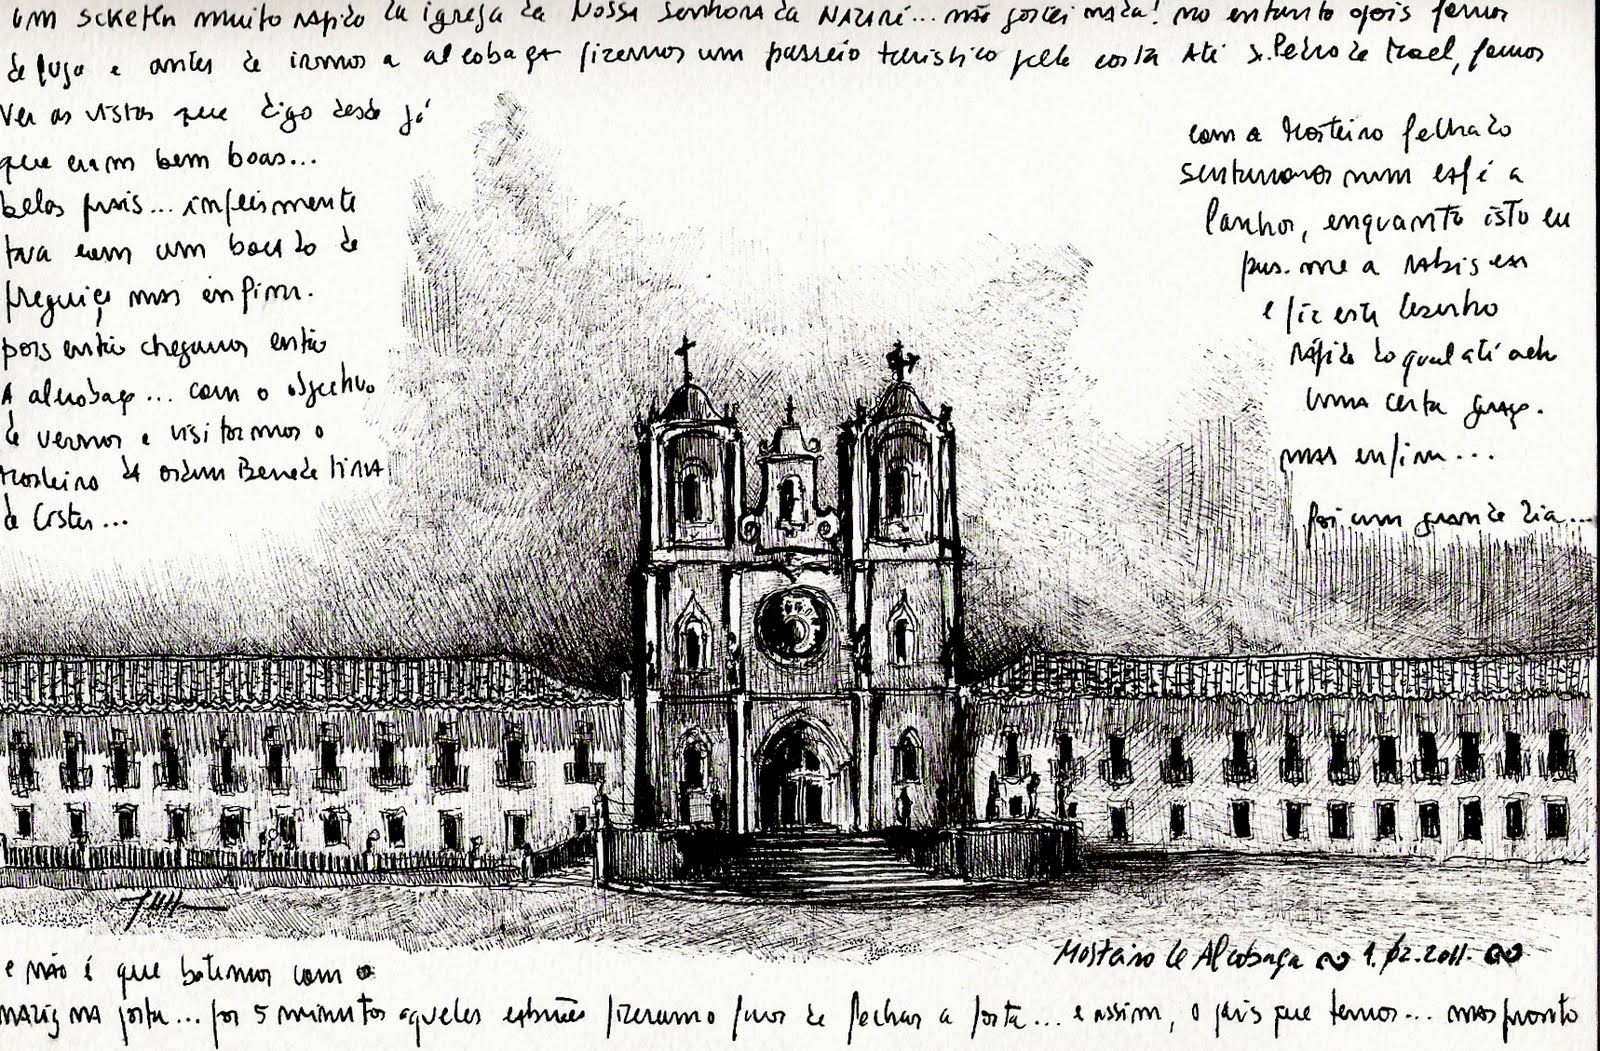 um scketch muito rápido da igreja da Nossa Senhora da Nazaré... não gostei nada! no entanto após fomos
de fuga e antes de irmos a alcobaça fizemos um passeio turistico pela costa até S. Pedro de Moel, fomos
ver as vistas que digo desde já
que eram bem boas...
belas praias... infelismente
tava com um bocado de
preguiça mas enfim.
pois então chegamos então
A alcobaça... com o objectivo
de vermos e visitarmos o
Mosteiro da ordem Beneditina
de Cister...
e não é que batemos com o
nariz na porta... por 5 minutos aqueles fizeram o favor de fechar a porta... e assim, o país que temos... mas pronto
com o Mosteiro fechado
sentamonos num café a
lanchar, enquanto isto eu
pus-me a rabiscar
e fiz este desenho
rápido do qual até acho
uma certa graça.
mas enfim...
foi um grande dia...
Mosteiro de Alcobaça 1.02.2011.